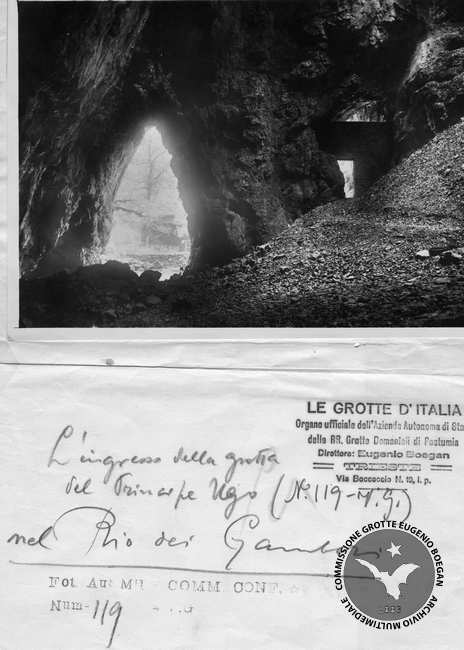 LE GROTTE D'ITALIA
Organo ufficiale dell'Azienda Autonoma di Sta
delle RR. Grotte Demaniali di Postumia
Direttore: Eugenio Boegan
TRIESTE
Via Boccaccio N. 19, I. p.
L'ingresso della grotta
del Principe Ugo (N.º 119 - M.G.)
nel Rio dei Gamberi
Fot. Aut. MI COMM. CONF.
Num. 119
COMMISSIONE GROTTE EUGENIO BOEGAN
ARCHIVIO MULTIMEDIALE
1883